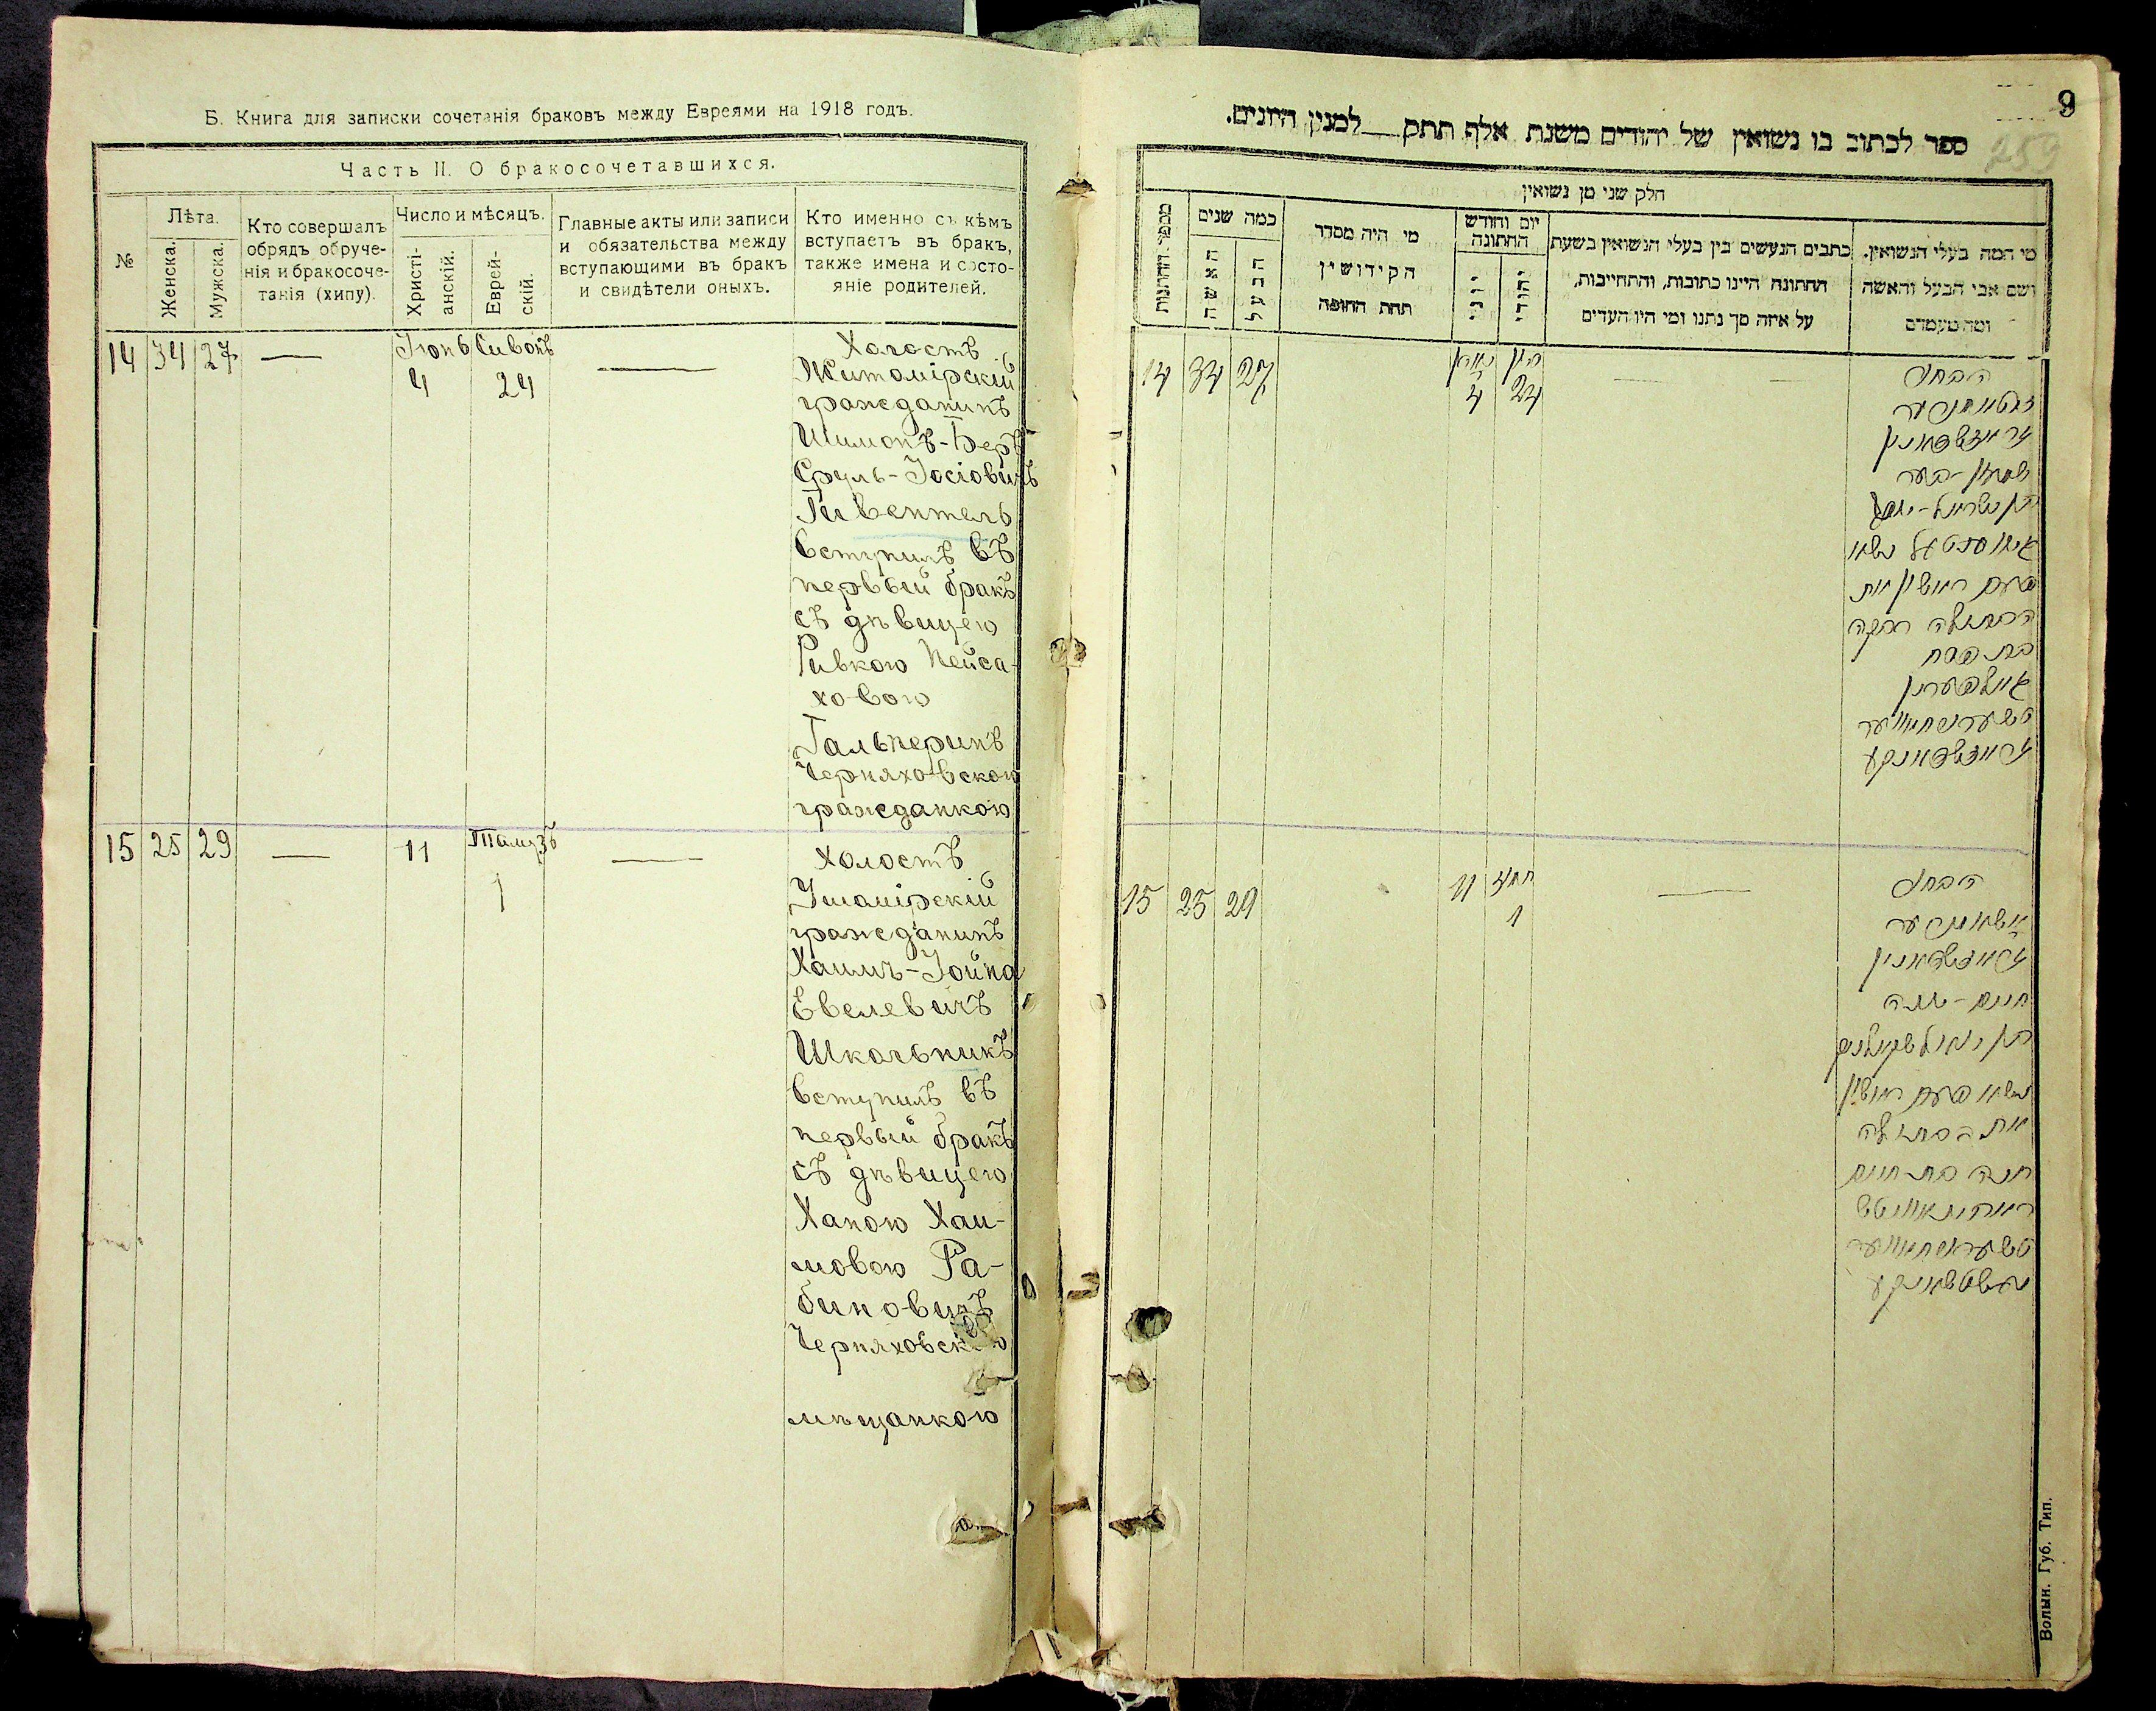 Б. Книга для записки сочетанія браковъ между Евреями на 1918 годъ.
Часть II. О бракосочетавшихся.
№
Лѣта.
Женска.
Мужска.
Кто совершалъ
обрядъ обруче-
нія и бракосоче-
танія (хипу).
Число и мѣсяцъ.
Христі-
анскій.
Еврей-
скій.
Главные акты или записи
и обязательства между
вступающими въ бракъ
и свидѣтели оныхъ.
Кто именно съ кѣмъ
вступаетъ въ бракъ,
также имена и состо-
яніе родителей.
14 34 27 — Іюнь 4 Сивонъ 24 —
Холостъ
Житомірскій
гражданинъ
Шимонъ-Беръ
Сруль-Іосіовичъ
Гивентель
вступилъ въ
первый бракъ
съ дѣвицею
Ривкою Пейса-
ховою
Гальперинъ
Черняховскою
гражданкою
15 25 29 — 11 Тамузъ 1 —
Холостъ
Ушомірскій
гражданинъ
Хаимъ-Іойна
Евелевичъ
Школьникъ
вступилъ въ
первый бракъ
съ дѣвицею
Ханою Хаи-
мовою Ра-
биновичъ
Черняховскою
мѣщанкою
9
259
ספר לכתוב בו נשואין של יהודים משנת אלף תתק למנין היונים.
חלק שני מן נשואין
מספר החתונות
כמה שנים
האשה
הבעל
מי היה מסדר
הקידושין
תחת החופה
יום וחודש
החתונה
יוני
יהודי
כתבים הנעשים בין בעלי הנשואין בשעת
החתונה היינו כתובות, והתחייבות,
על איזה סך נתנו ומי היו העדים
מי המה בעלי הנשואין.
ושם אבי הבעל והאשה
ומה מעמדם
14 34 27 4 סיון 24 — —
הבחור
זיטאמירער
שמעון-בער
בן ישראל-יוסף
פעם ראשון את
הבתולה רבקה
בת פסח
גאלפערין
טשערניחאווער
15 25 29 11 תמוז 1 —
הבחור
אושאמירער
חיים-יונה
נשא פעם ראשון
את הבתולה
חנה בת חיים
ראבינאוויטש
טשערניחאווער
Волын. Губ. Тип.